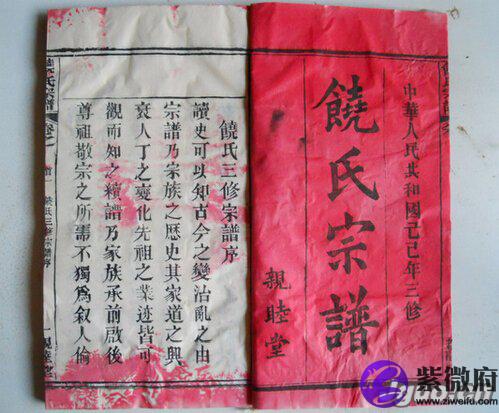 中華人民共和國己巳年三修
饒氏宗譜
親睦堂
饒氏三修宗譜序
讀史可以知古今之變治亂之由
宗譜乃宗族之歷史其家道之興
衰人丁之變化先祖之業迹皆可
觀而知之續譜乃家族承前啟後
尊祖敬宗之所需不獨為叙人倫
氏宗譜
氏三修宗譜序
一親睦堂
紫微府
www.ziweifu.com